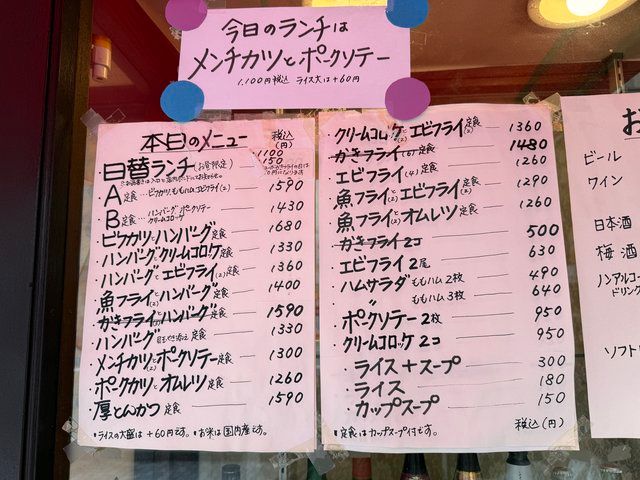 今日のランチは
メンチカツとポークソテー
1,100円税込 ライス大は+60円
本日のメニュー 税込(円)
・日替ランチ 1100
150
A定食…ビフカツ,ももハム,エビフライ(2) 1590
B定食…ハンバーグ,ポークソテー クリームコロッケ 1430
・ビフカツとハンバーグ定食 1680
・ハンバーグとクリームコロッケ定食 1330
・ハンバーグとエビフライ(2)定食 1360
・魚フライ(2)とハンバーグ定食 1400
・かきフライ(3)とハンバーグ定食 1590
・ハンバーグ 目玉やき添え 定食 1330
・メンチカツ(2)とポークソテー定食 1300
・ポークカツとオムレツ定食 1260
・厚とんかつ定食 1590
*ライスの大盛は+60円です。 *お米は国内産です。
・クリームコロッケとエビフライ(2)定食 1360
・かきフライ(6)定食 1480
・エビフライ(4)定食 1260
・魚フライ(2)とエビフライ(2)定食 1290
・魚フライ(2)とオムレツ定食 1260
・かきフライ2コ 500
・エビフライ2尾 630
・ハムサラダ ももハム2枚 490
〃 ももハム3枚 640
・ポークソテー2枚 950
・クリームコロッケ2コ 950
・ライス+スープ 300
・ライス 180
・カップスープ 150
*定食はカップスープ付です。 税込(円)
お
ビール
ワイン
日本酒
梅酒
ノンアルコー
ドリンク
ソフト